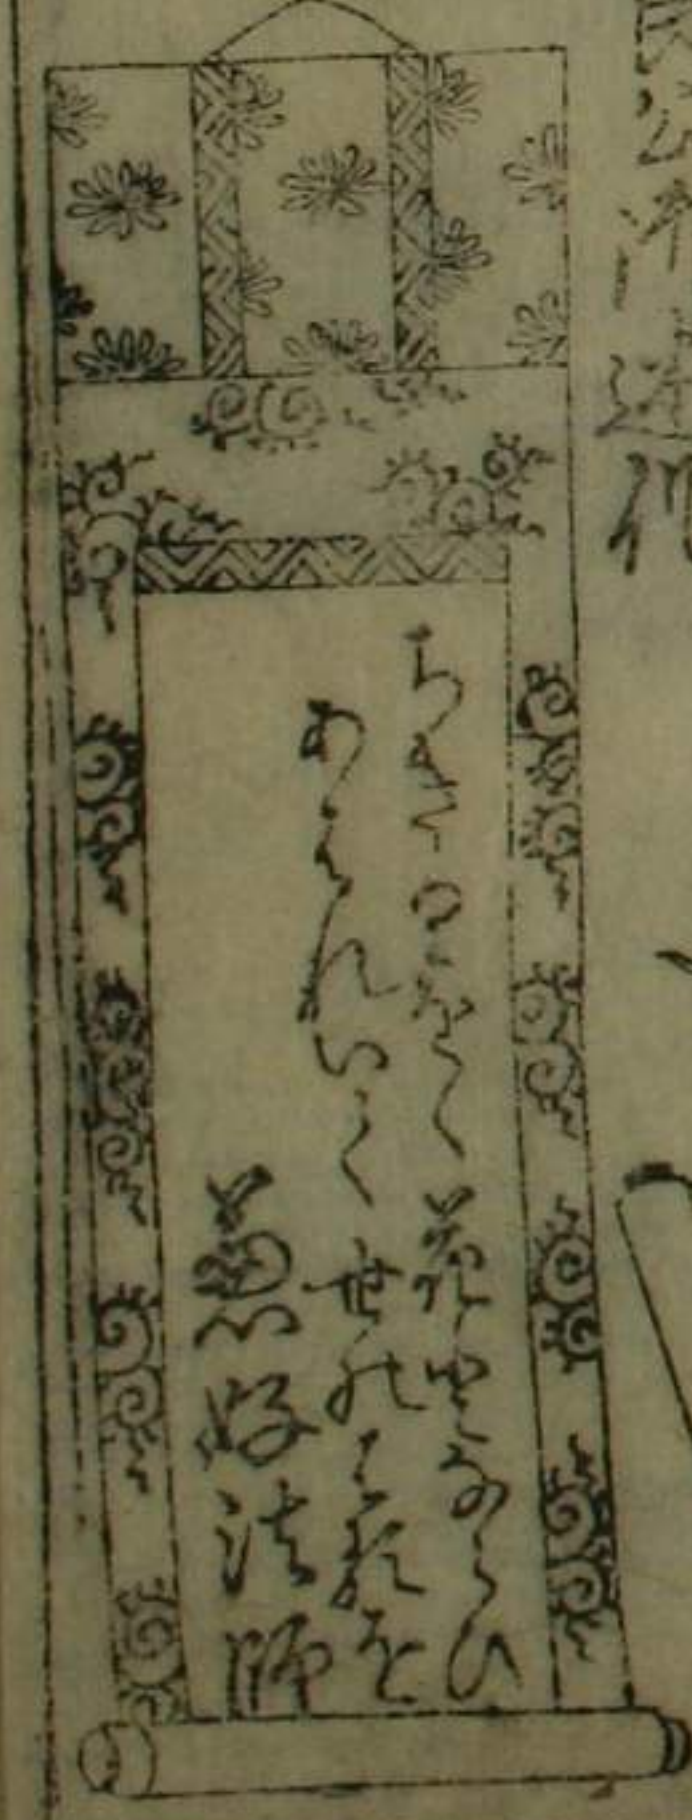 ちきりをく花とならひ
あはれいく世のはるを
兼好法師